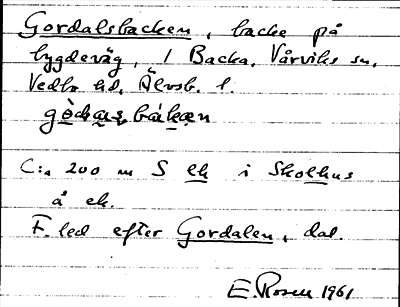 Gordalsbacken, backe på
bygdeväg, 1 Backa. Vårviks sn,
Vedbo hd, Älvsb. l.
C:a 200 m S ek i Skolhus
å ek.
F. led efter Gordalen, dal.
E. Rosen 1961